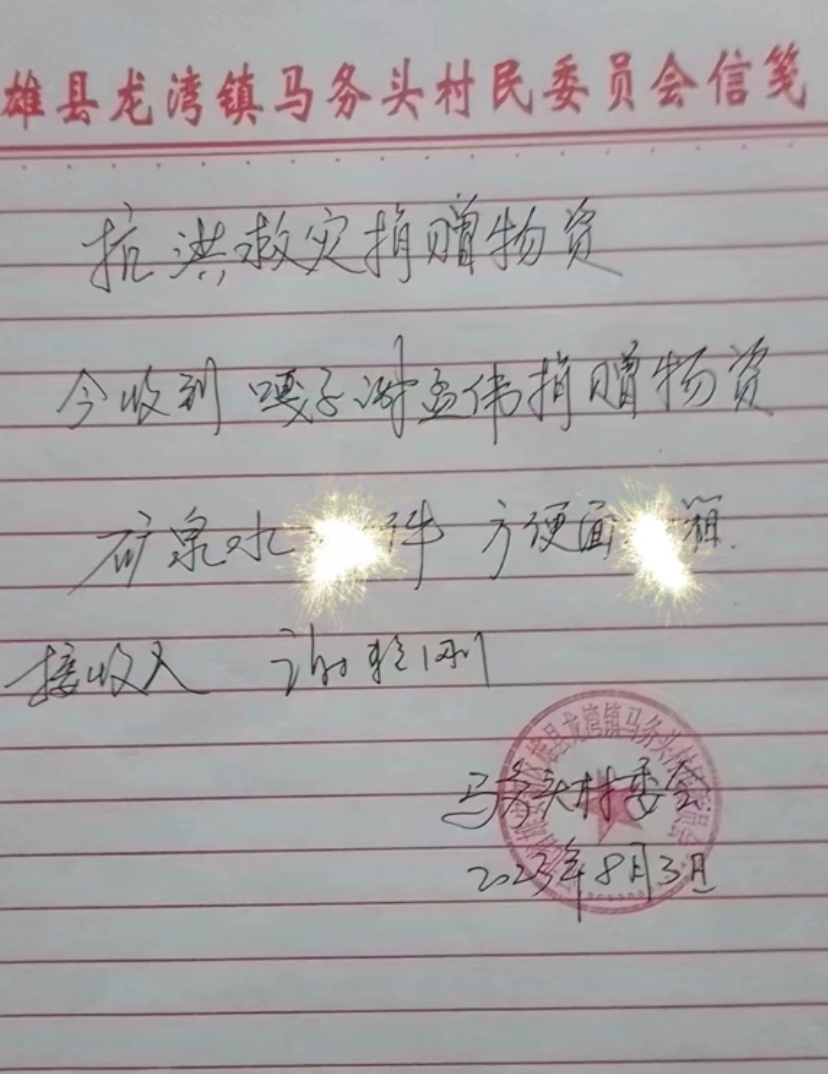 雄县龙湾镇马务头村民委员会信笺
抗洪救灾捐赠物资
今收到 嘎子谢孟伟捐赠物资
矿泉水 件 方便面 箱
接收人 谢 刚
马务头村委会
2023年8月3日